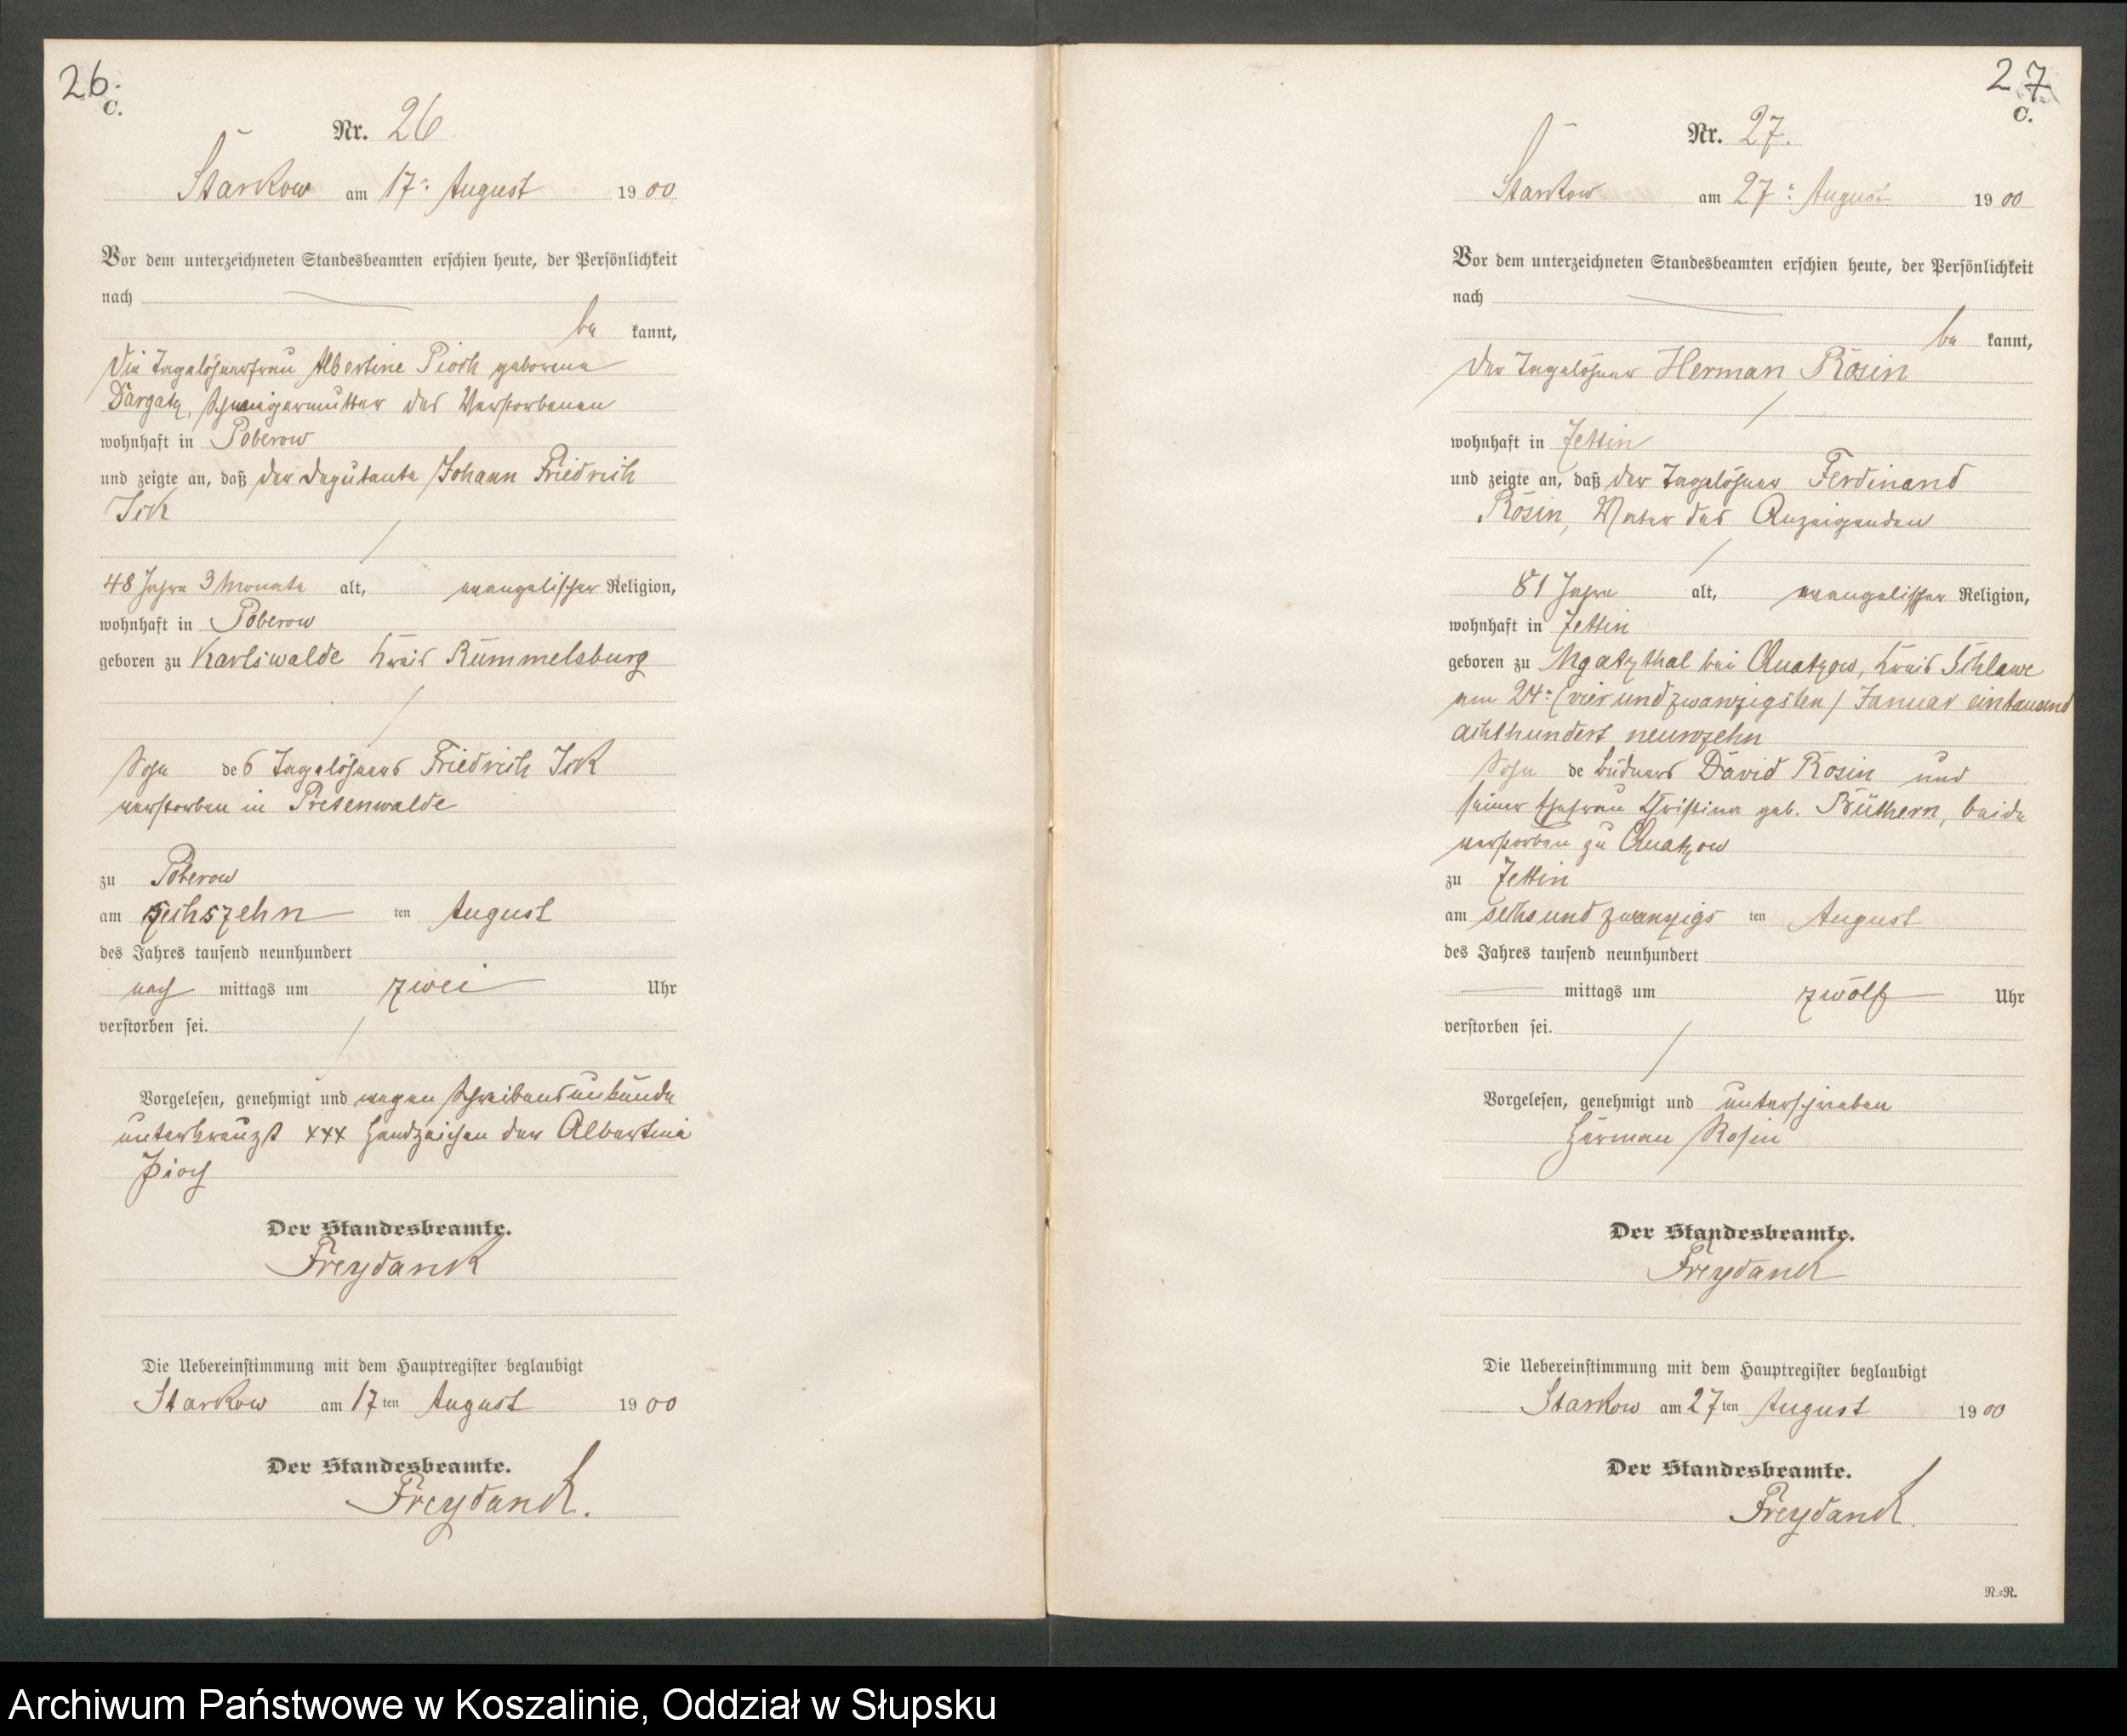 26.
C.
Nr. 26
Starkow am 17ᵗ August 1900
Vor dem unterzeichneten Standesbeamten erschien heute, der Persönlichkeit
nach
be kannt,
die Tagelöhnerfrau Albertine Pioch geborene
Dargatz, Schwiegermutter des Verstorbenen
wohnhaft in Poberow
und zeigte an, daß der Deputante Johann Friedrich
Ick
48 Jahre 3 Monate alt, evangelischer Religion,
wohnhaft in Poberow
geboren zu Karlswalde Kreis Rummelsburg
Sohn des Tagelöhners Friedrich Ick
verstorben in Pretenwalde
zu Poberow
am sechszehn ten August
des Jahres tausend neunhundert
nach mittags um zwei Uhr
verstorben sei.
Vorgelesen, genehmigt und wegen Schreibensunkunde
unterkreuzt xxx Handzeichen der Albertine
Pioch
Der Standesbeamte.
Freydank
Die Uebereinstimmung mit dem Hauptregister beglaubigt
Starkow am 17ten August 1900
Der Standesbeamte.
Freydank.
27
C.
Nr. 27.
Starkow am 27ᵗ August 1900
Vor dem unterzeichneten Standesbeamten erschien heute, der Persönlichkeit
nach
be kannt,
der Tagelöhner Herman Rosin
wohnhaft in Zettin
und zeigte an, daß der Tagelöhner Ferdinand
Rosin, Vater des Anzeigenden
81 Jahre alt, evangelischer Religion,
wohnhaft in Zettin
geboren zu bei Quatzow, Kreis Schlawe
am 24ᵗ (vierundzwanzigsten) Januar eintausend
achthundert neunzehn
Sohn de Büdners David Rosin und
seiner Ehefrau Christina geb. Büthern, beide
verstorben zu Quatzow
zu Zettin
am sechsundzwanzigs ten August
des Jahres tausend neunhundert
mittags um zwölf Uhr
verstorben sei.
Vorgelesen, genehmigt und unterschrieben
Herman Rosin
Der Standesbeamte.
Freydank
Die Uebereinstimmung mit dem Hauptregister beglaubigt
Starkow am 27ten August 1900
Der Standesbeamte.
Freydank.
N.=R.
Archiwum Państwowe w Koszalinie, Oddział w Słupsku